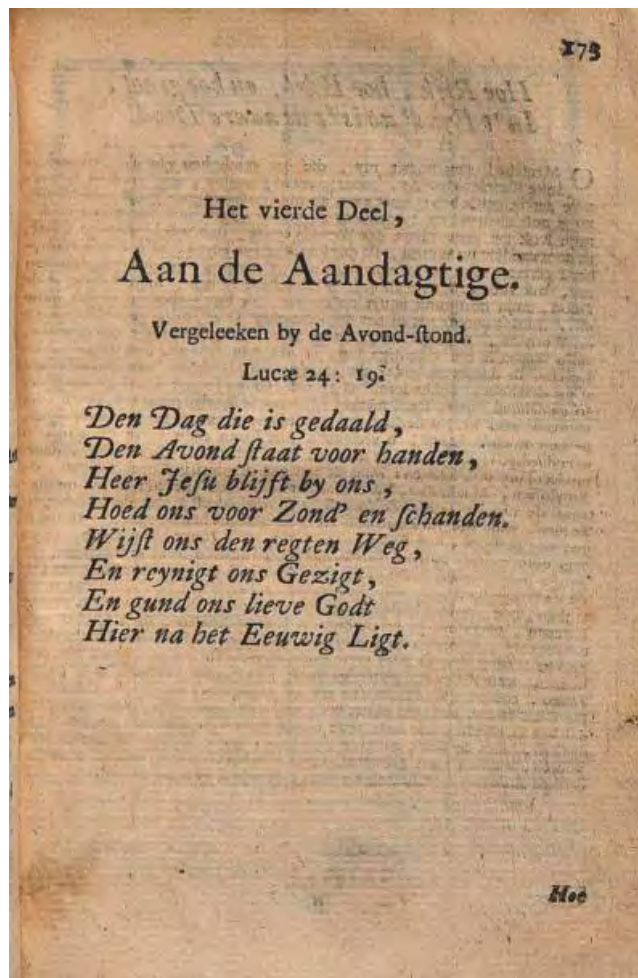 173
Het vierde Deel,
Aan de Aandagtige.
Vergeleeken by de Avond-ſtond.
Lucæ 24: 19.
Den Dag die is gedaald,
Den Avond ſtaat voor handen,
Heer Jeſu blijft by ons,
Hoed ons voor Zond' en ſchanden.
Wijſt ons den regten Weg,
En reynigt ons Gezigt,
En gund ons lieve Godt
Hier na het Eeuwig Ligt.
Hoe